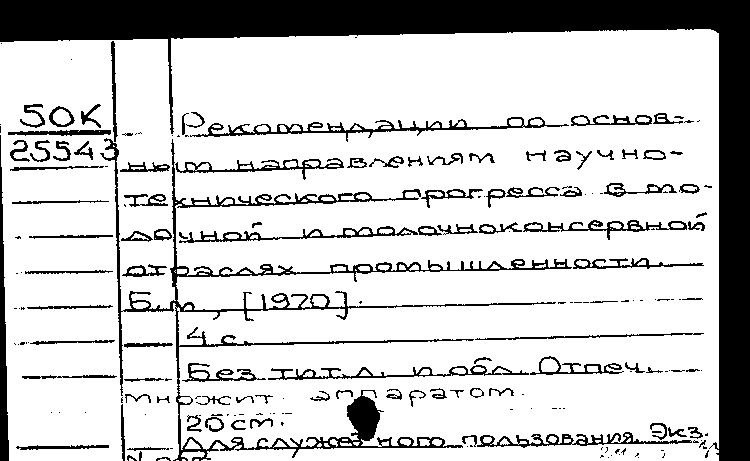 50К
25543
Рекомендации по основ-
ным направлениям научно-
технического прогресса в мо-
лочной и молочноконсервной
отраслях промышленности.
Б.м, [1970].
4 с.
Без тит.л. и обл. Отпеч.
множит. аппаратом.
20 см.
Для служебного пользования. Экз.